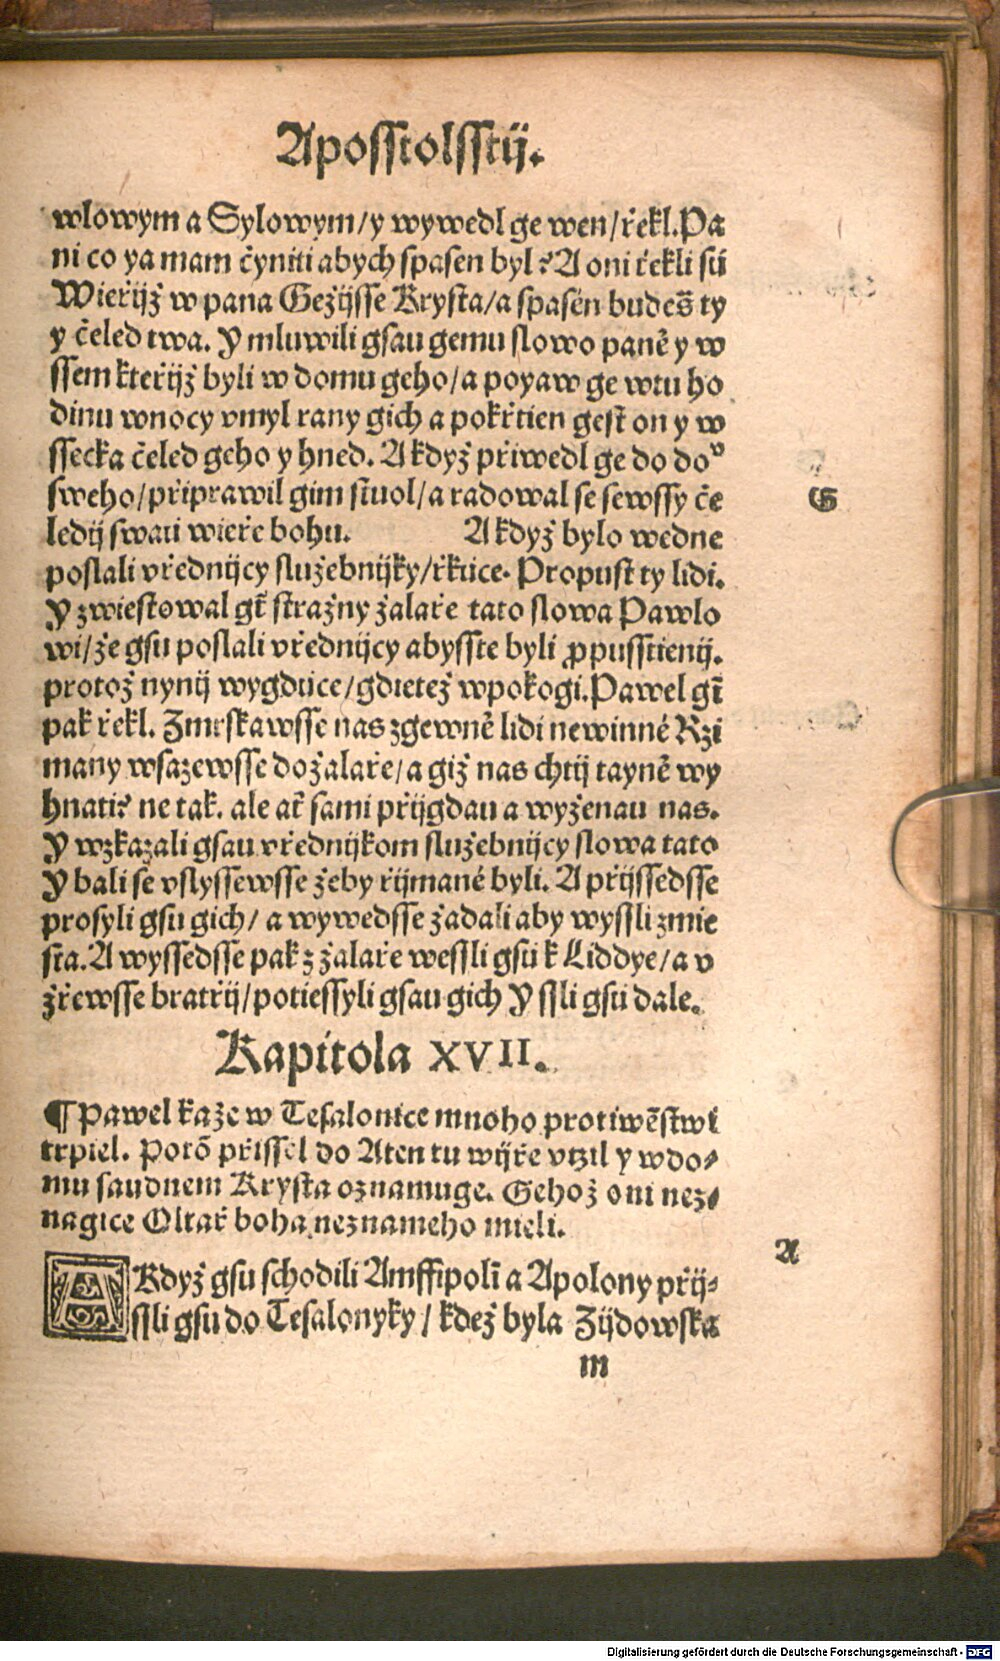 Aposstolsstij.
wlowym a Sylowym/y wywedl ge wen/řekl.Pa
ni co ya mam čyniti abych spasen byl? A oni řekli sú
Wieřijž w pana Gežijsse Krysta/a spasen budeš ty
y čeled twa. Y mluwili gsau gemu slowo paně y w
ssem kteřijž byli w domu geho/a poyaw ge wtu ho
dinu wnocy vmyl rany gich a pokřtien gest on y w
ssecka čeled geho y hned. A když přiwedl ge do doᵛ
sweho/připrawil gim stuol/a radowal se sewssy če
G
ledij swau wieře bohu. A když bylo wedne
poslali vřednijcy služebnijky/řkúce. Propust ty lidi.
Y zwiestowal gt̄ stražny žalaře tato slowa Pawlo
wi/že gsu poslali vřednijcy abysste byli ꝓpusstienij.
protož nynij wygdúce/gdietež wpokogi.Pawel gt̄
pak řekl. Zmrskawsse nas zgewně lidi newinné Rzi
many wsazewsse dožalaře/a giž nas chtij tayně wy
hnati? ne tak. ale ať sami přijgdau a wyženau nas.
Y wzkazali gsau vřednijkom služebnijcy slowa tato
Y bali se vslyssewsse žeby řijmané byli. A přijssedsse
prosyli gsu gich/ a wywedsse žadali aby wyssli zmie
sta. A wyssedsse pak z žalaře wessli gsú k Liddye/a v
zřewsse bratřij/potiessyli gsau gich Y ssli gsú dale.
Kapitola XVII.
¶ Pawel kaže w Tesalonice mnoho protiwēstwi
trpiel. Potō přissel do Aten tu wijře vtzil y wdo⸗
mu saudnem Krysta oznamuge. Gehož oni nez⸗
nagice Oltař boha neznameho mieli.
A
A Když gsu schodili Amffipoli a Apolony přij⸗
ssli gsu do Tesalonyky / kdež byla Zijdowska
m
Digitalisierung gefördert durch die Deutsche Forschungsgemeinschaft - DFG